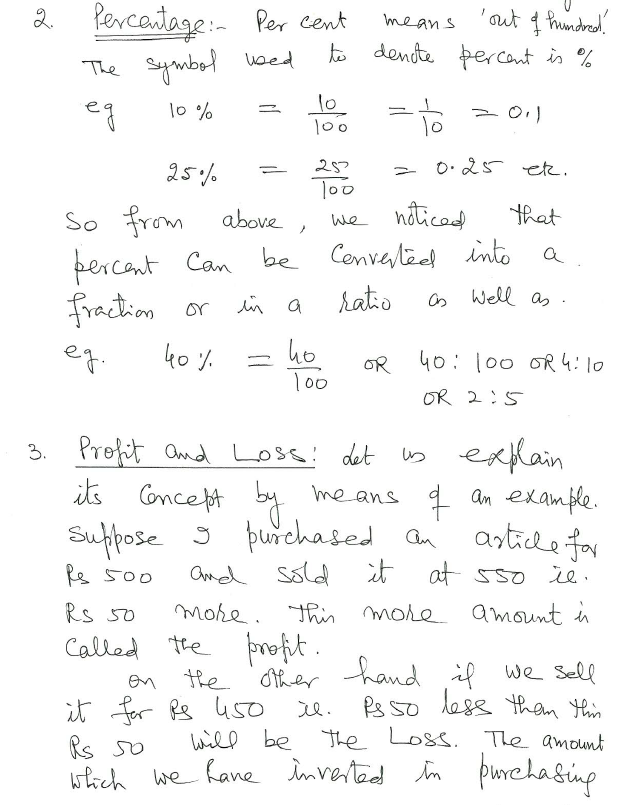 2. Percentage:- Per cent means 'out of hundred'.
The symbol used to denote percent is %
eg 10% = 10/100 = 1/10 = 0.1
25% = 25/100 = 0.25 etc.
So from above, we noticed that
percent can be converted into a
fraction or in a ratio as well as.
eg. 40% = 40/100 OR 40:100 OR 4:10
OR 2:5
3. Profit and Loss: Let us explain
its concept by means of an example.
Suppose I purchased an article for
Rs 500 and sold it at 550 ie.
Rs 50 more. This more amount is
called the profit.
on the other hand if we sell
it for Rs 450 ie. Rs 50 less than this
Rs 50 will be the Loss. The amount
which we have invested in purchasing